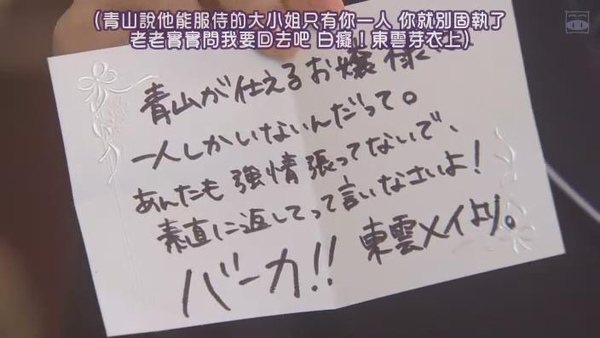 (青山說他能服侍的大小姐只有你一人 你就別固執了
老老實實問我要回去吧 白癡！東雲芽衣上)
青山が仕えるお嬢様は
一人しかいないんだって。
あんたも強情張ってないで、
素直に返してって言いなさいよ！
バーカ!! 東雲メイより。